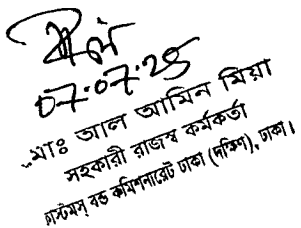 07.07.25
মোঃ আল আমিন মিয়া
সহকারী রাজস্ব কর্মকর্তা
কাস্টমস্ বন্ড কমিশনারেট ঢাকা (দক্ষিণ), ঢাকা।